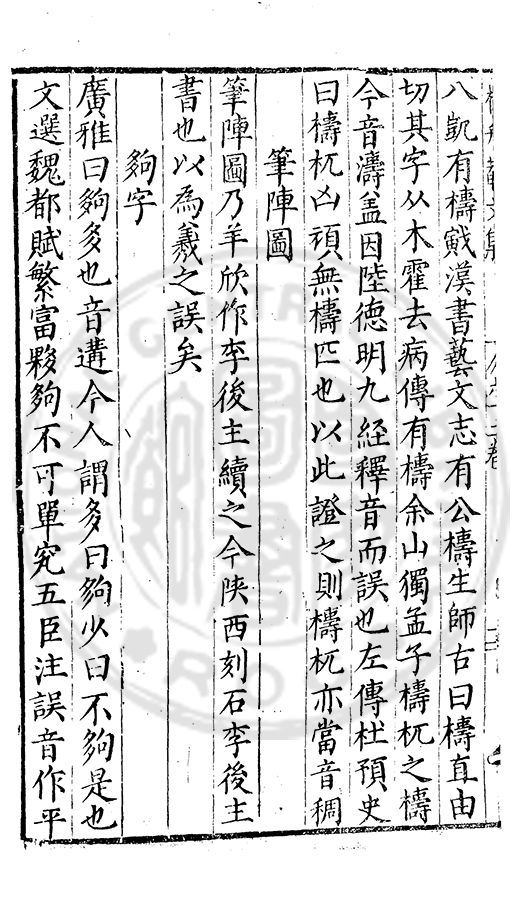 八凱有檮戭漢書藝文志有公檮生師古曰檮直由
切其字从木霍去病傳有檮余山獨孟子檮杌之檮
今音濤盖因陸德明九經釋音而誤也左傳杜預史
曰檮杌凶頑無檮匹也以此證之則檮杌亦當音稠
筆陣圖
筆陣圖乃羊欣作李後主續之今陕西刻石李後主
書也以為羲之誤矣
夠字
廣雅曰夠多也音遘今人謂多曰夠少曰不夠是也
文選魏都賦繁富夥夠不可單究五臣注誤音作平